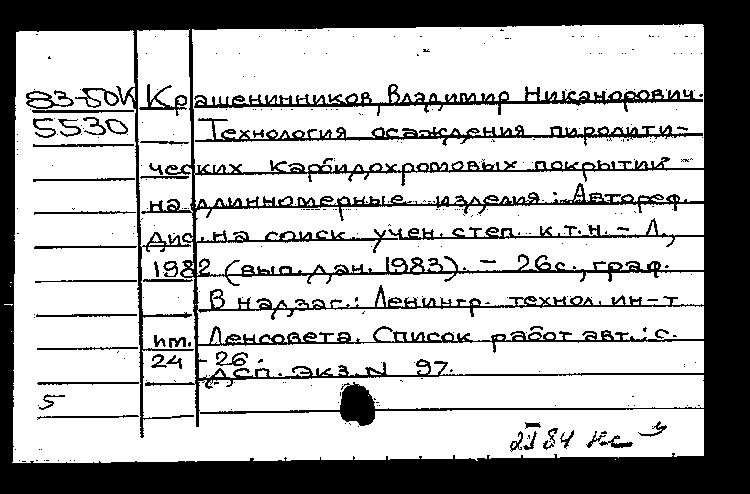 83-50К Крашенинников, Владимир Никанорович.
5530 Технология осаждения пиролити-
ческих карбидохромовых покрытий
на длинномерные изделия : Автореф.
дис. на соиск. учен. степ. к.т.н. - Л.,
1982 (вып. дан. 1983). - 26с., граф.
В надзаг.: Ленингр. технол. ин-т
им. Ленсовета. Список работ авт.: с.
24 - 26.
ДСП. Экз. N 97.
5
84